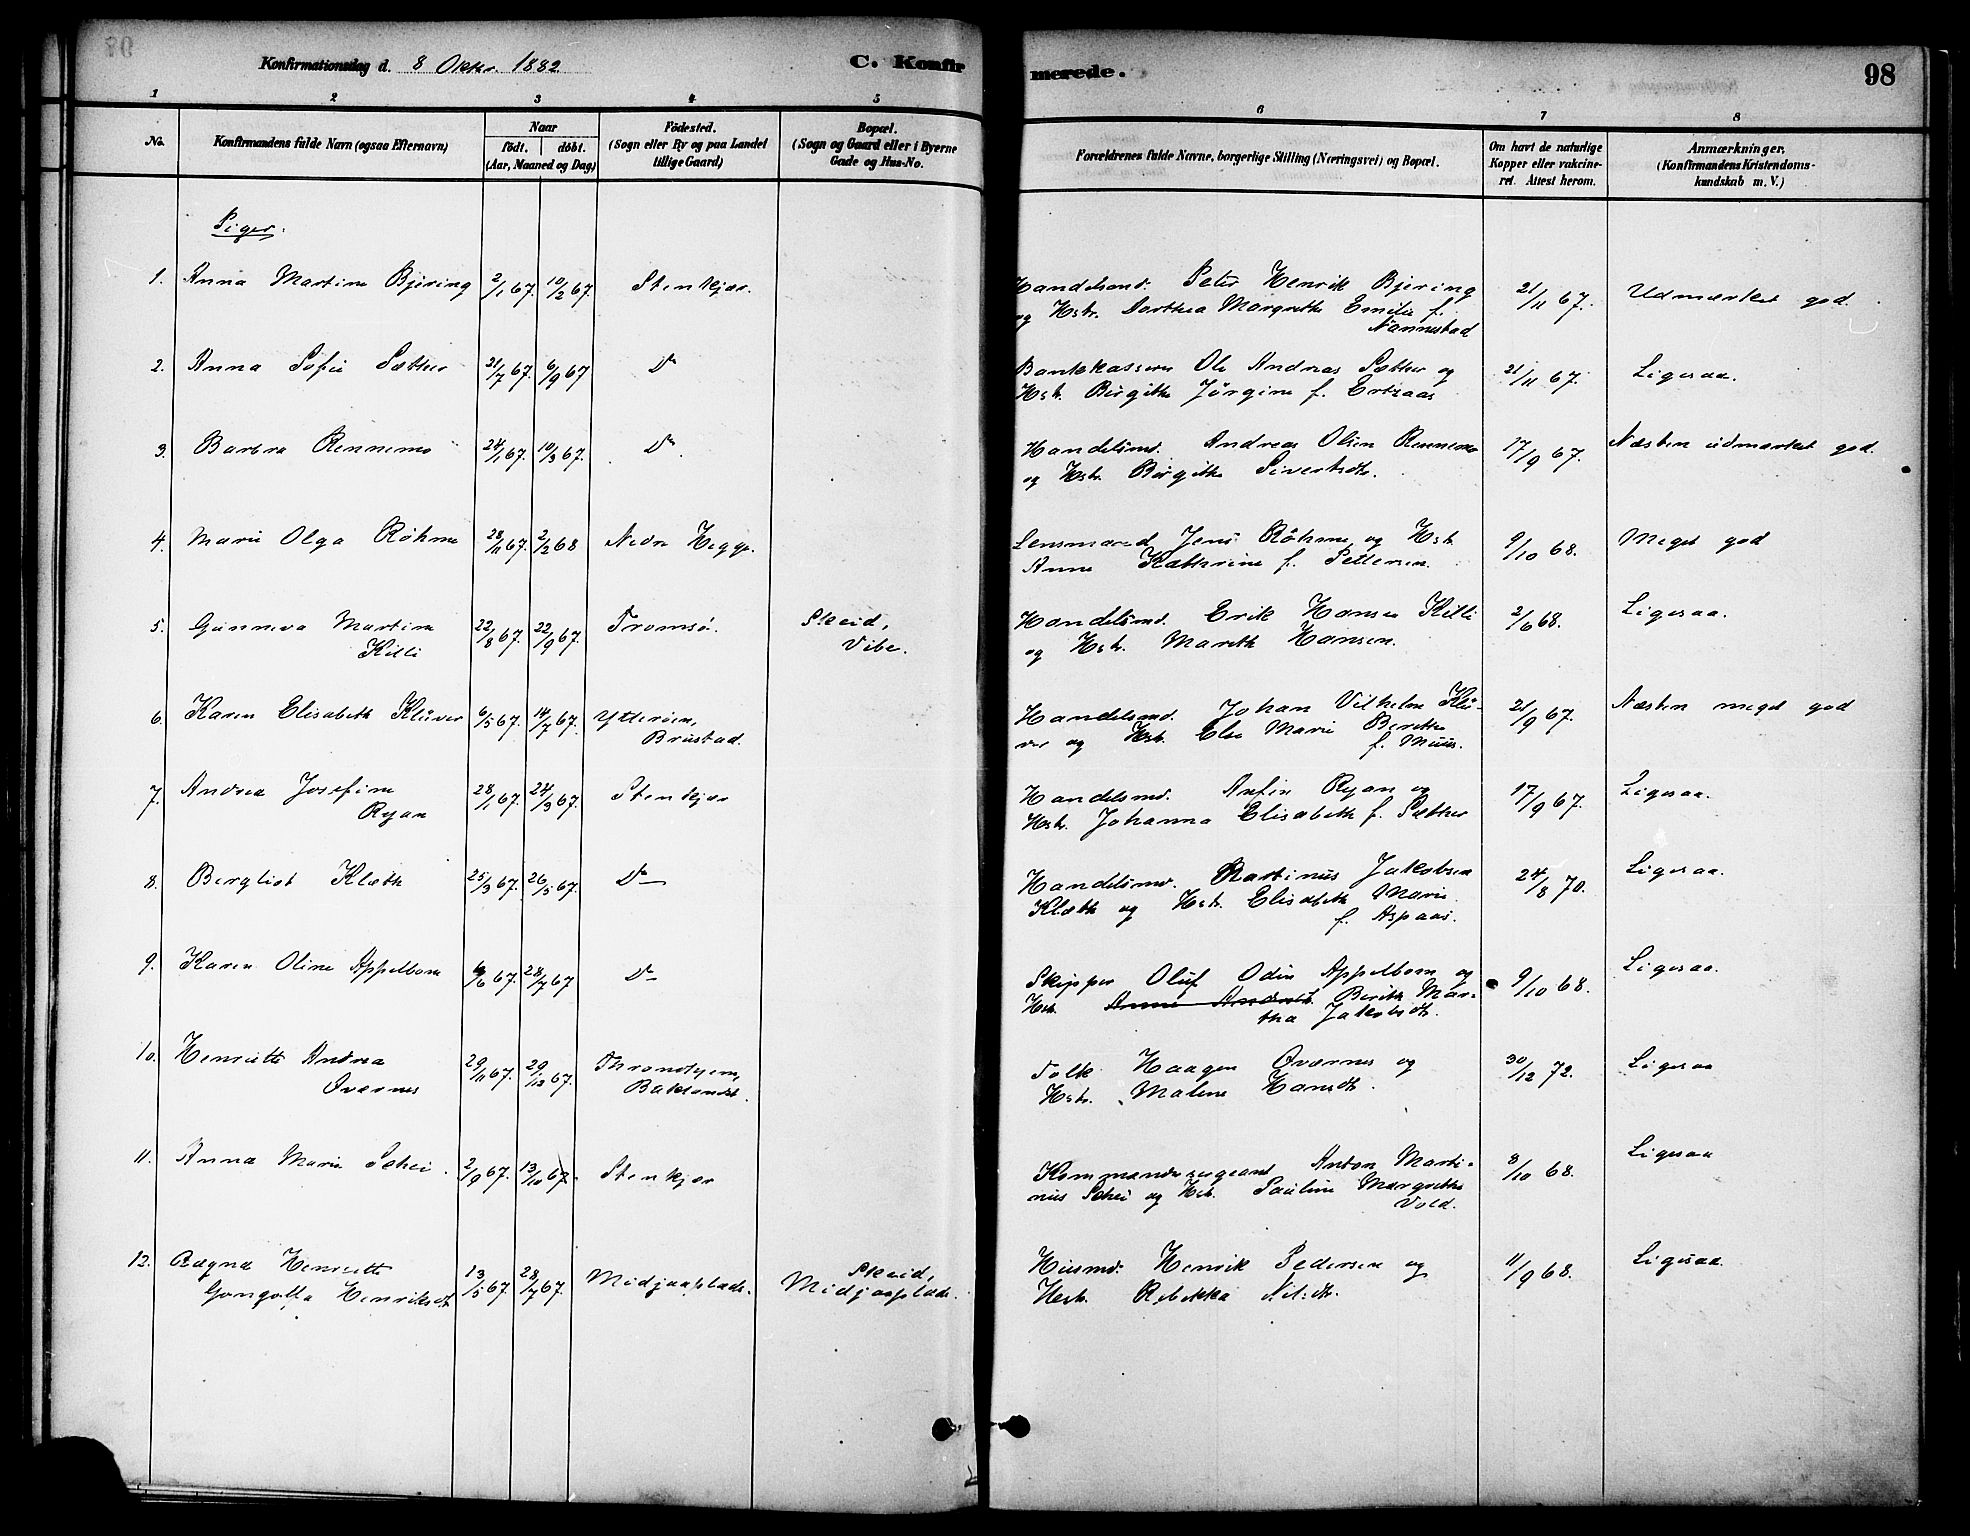 Konfirmationsdag d. 8 Oktbr. 1882
C. Konfirmerede.
98
1 2 3 4 5 6 7 8
No.
Konfirmandens fulde Navn (ogsaa Efternavn)
Naar
födt. döbt.
(Aar, Maaned og Dag)
Födested.
(Sogn eller By og paa Landet
tillige Gaard)
Bopæl.
(Sogn og Gaard eller i Byerne
Gade og Hus-No.
Forældrenes fulde Navne, borgerlige Stilling (Næringsvei) og Bopæl.
Om havt de naturlige
Kopper eller vakcine-
ret. Attest herom.
Anmærkninger.
(Konfirmandens Kristendoms-
kundskab m. V.)
Piger.
1. Anna Martine Bjering 2/1 67. 10/2 67. Stenkjær. Handelsmd. Peter Henrik Bjering 21/11 67. Udmærket god.
og Hstr. Dorthea Margrethe Emilie f.
Nannestad
2. Anna Sofie Sæther 21/7 67. 6/9 67 Do Bankkasserer Ole Andreas Sæther og 21/11 67. Ligesaa.
Hstr. Birgithe Jörgine f. Ertzaas
3. Barbra Rennemo 24/1 67. 10/3 67. Do Handelsmd. Andreas Olsen Rennemo 17/9 67. Næsten udmærket god.
og Hstr. Birgithe Sivertsdtr.
4. Marie Olga Röhme 28/11 67. 2/2 68 Nedre Hegge. Lensmand Jens Röhme og Hstr. 9/10 68. Meget god
Anne Katharine f. Pettersen.
5. Gunneva Martine 22/8 67. 22/9 67. Tromsö. Skeid, Handelsmd. Erik Hansen Killi 2/6 68. Ligesaa.
Killi Vibe. og Hstr. Mareth Hansen.
6. Karen Elisabeth Klüver 6/5 67. 14/7 67. Ytteröen, Handelsmd. Johan Vilhelm Klü- 21/9 67. Næsten meget god
Brustad. ver og Hstr. Else Marie Berethe
f. Muus.
7. Andrea Josefine 28/1 67. 24/3 67. Stenkjær Handelsmd. Anfin Ryan og 17/9 67. Ligesaa.
Ryan Hstr. Johanna Elisabeth f. Sæther
8. Bergliot Klæth 25/3 67. 26/5 67. Do Handelsmd. Martinus Jakobsen 24/8 70. Ligesaa.
Klæth og Hstr. Elisabeth Marie
f. Aspaas.
9. Karen Oline Appelbom 6/6 67. 28/7 67 Do Skipper Oluf Odin Appelbom og 9/10 68. Ligesaa.
Hstr. Anne Andrea Berith Mar-
tha Jakobsdtr.
10. Henriette Andrea 29/11 67. 29/12 67. Throndhjem, Tolk Haagen Övernes og 30/12 72. Ligesaa
Övernes Baklandet. Hstr. Malene Hansdtr.
11. Anna Marie Schei. 2/9 67. 13/10 67. Stenkjær Kommandersergeant Anton Marti- 8/10 68. Ligesaa
nus Schei og Hstr. Pauline Margrethe
Vold.
12. Ragna Henriette 13/5 67. 28/7 67. Midjaaplads. Skeid, Husmd. Henrik Pedersen og 11/9 68. Ligesaa.
Gongolla Henriksdt. Midjaaplads. Hstr. Rebekka Nilsdtr.